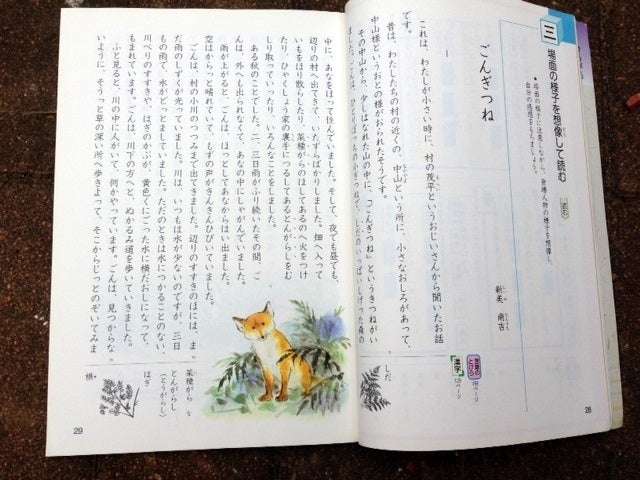 三
場面の様子を想像して読む
読む
ごんぎつね
新美 南吉
1
これは、わたしが小さい時に、村の茂平というおじいさんから聞いたお話
です。
昔は、わたしたちの村の近くの、中山という所に、小さなおしろがあって、
中山様というおとの様がおられたそうです。
その中山から、少しはなれた山の中に、「ごんぎつね」というきつねがい
ました。ごんは、ひとりぼっちの小ぎつねで、しだのいっぱいしげった森の
しだ
漢字
28
中に、あなをほって住んでいました。そして、夜でも昼でも、
辺りの村へ出てきて、いたずらばかりしました。畑へ入って
いもをほり散らしたり、菜種がらのほしてあるのへ火をつけ
たり、ひゃくしょう家の裏手につるしてあるとんがらしをむ
しり取っていったり、いろんなことをしました。
ある秋のことでした。二、三日雨がふり続いたその間、ご
んは、外へも出られなくて、あなの中にしゃがんでいました。
雨が上がると、ごんは、ほっとしてあなからはい出ました。
空はからっと晴れていて、もずの声がきんきんひびいていました。
ごんは、村の小川のつつみまで出てきました。辺りのすすきのほには、ま
だ雨のしずくが光っていました。川は、いつもは水が少ないのですが、三日
もの雨で、水がどっとましていました。ただのときは水につかることのない、
川べりのすすきや、はぎのかぶが、黄色くにごった水に横だおしになって、
もまれています。ごんは、川下の方へと、ぬかるみ道を歩いていきました。
ふと見ると、川の中に人がいて、何かやっています。ごんは、見つからな
いように、そうっと草の深い所へ歩きよって、そこからじっとのぞいてみま
菜種がら
とんがらし
(とうがらし)
はぎ
横
29